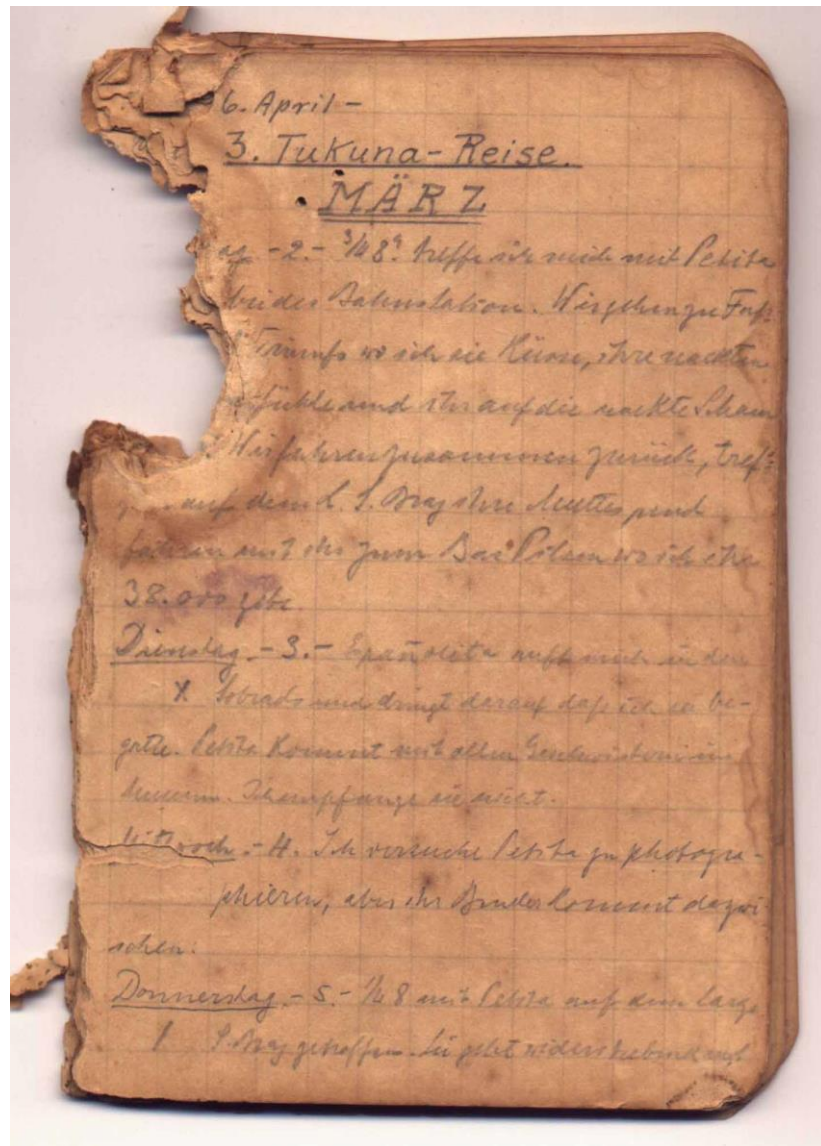 6. April -
3. Tukuna-Reise.
MÄRZ
- 2. - 3/4 8h treffe ich mich mit Petita
bei der Bahnstation. Wir gehen zu Fuß
wo ich sie küsse, ihre nackten
fühle und ihr auf die nackte Scham
Wir fahren zusammen zurück, tref-
auf dem L. S. Braz ihre Mutter und
fahren mit ihr zum Bar Pilsen wo ich ihr
38.000 gebe.
Dienstag. - 3. - Españolita ruft mich in den
X Sobrado und dringt darauf daß ich sie be-
gatte. Petita kommt mit allen Geschwistern ins
Museum. Ich empfange sie nicht.
Mittwoch. - 4. Ich versuche Petita zu photogra-
phieren, aber ihr Bruder kommt dazwi-
schen.
Donnerstag. - 5. - 1/4 8 mit Petita auf dem largo
S. Braz getroffen. Sie geht widerstrebend mit